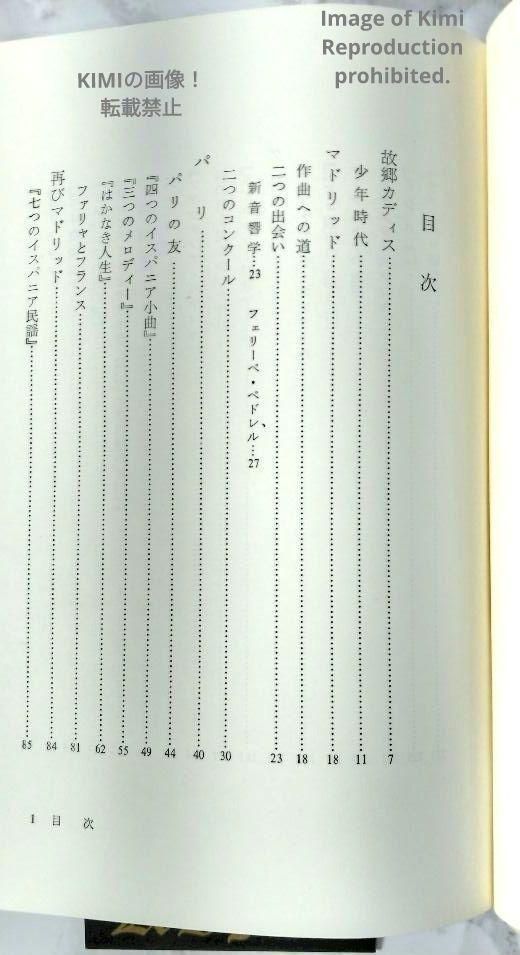 Image of Kimi
Reproduction
prohibited.
KIMIの画像！
転載禁止
目次
故郷カディス……7
少年時代……11
マドリッド……18
作曲への道……18
二つの出会い……23
新音響学……23 フェリーペ・ペドレル……27
二つのコンクール……30
パリ……40
パリの友……44
『四つのイスパニア小曲』……49
『三つのメロディー』……55
『はかなき人生』……62
ファリャとフランス……81
再びマドリッド……84
『七つのイスパニア民謡』……85
1 目次